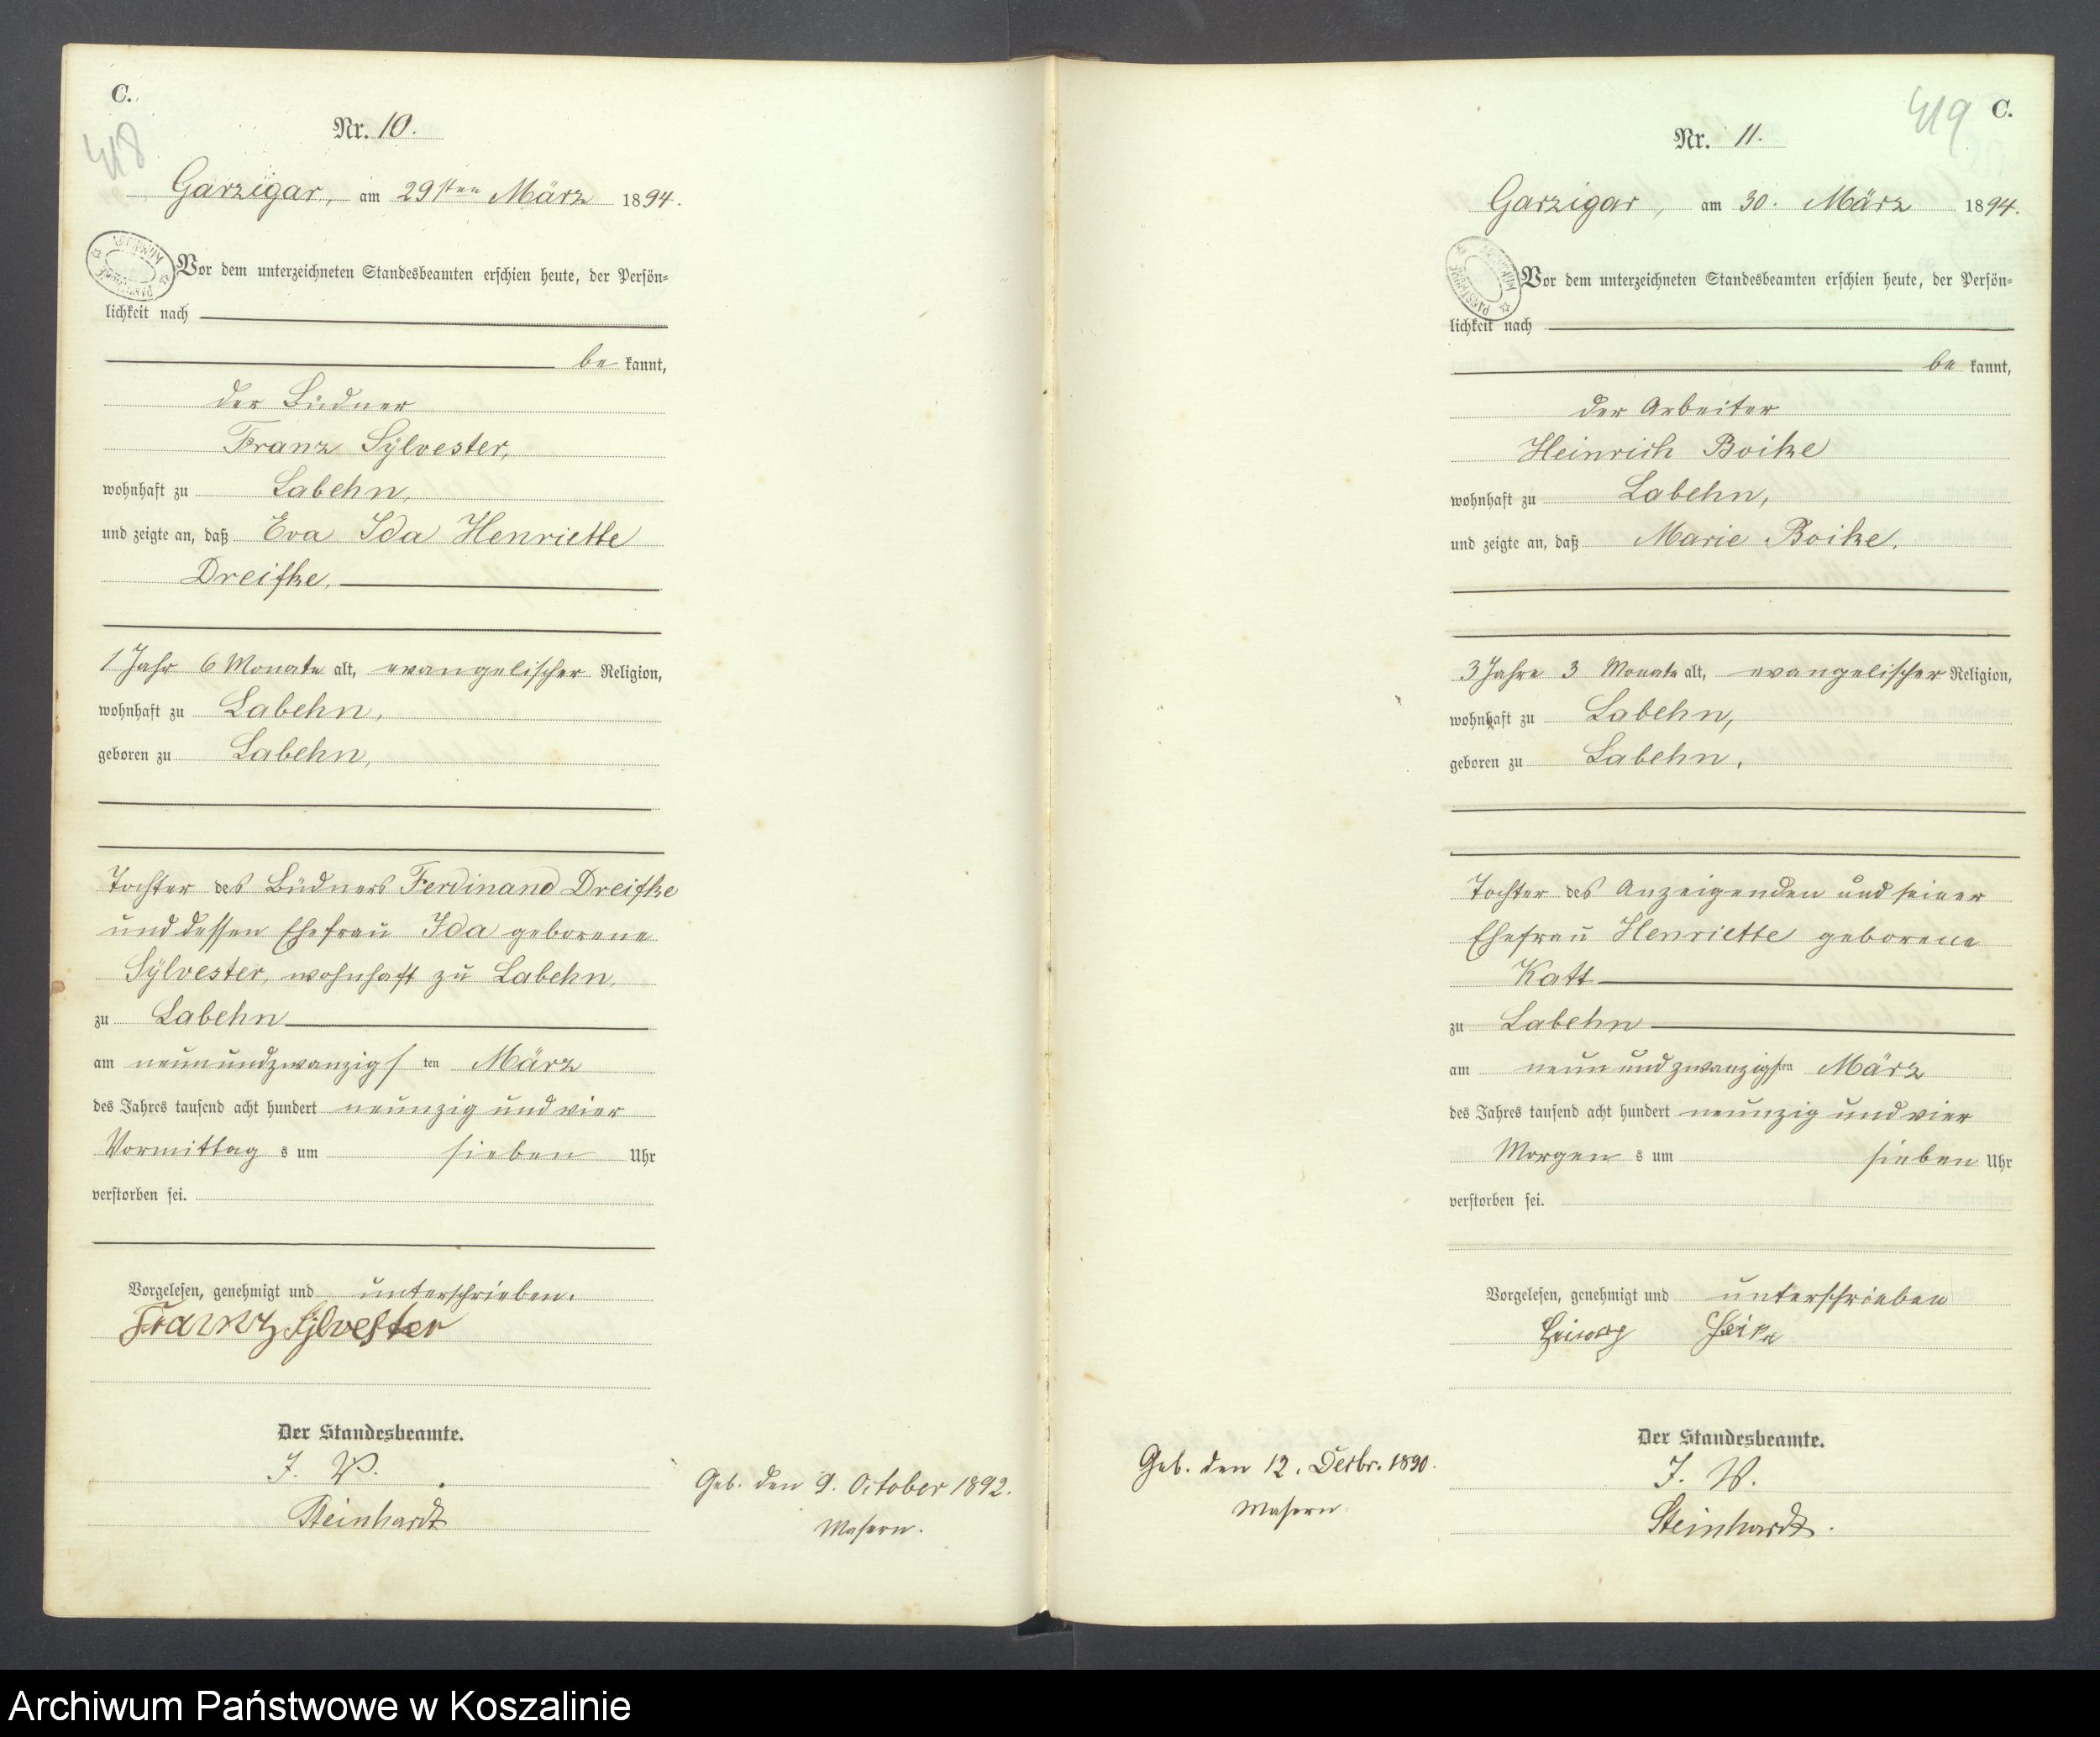 C.
418
Nr. 10.
Garzigar, am 29sten März 1894.
Vor dem unterzeichneten Standesbeamten erschien heute, der Persön-
lichkeit nach
be kannt,
der Büdner
Franz Sylvester,
wohnhaft zu Labehn,
und zeigte an, daß Eva Ida Henriette
Dreifke,
1 Jahr 6 Monate alt, evangelischer Religion,
wohnhaft zu Labehn,
geboren zu Labehn,
Tochter des Büdners Ferdinand Dreifke
und dessen Ehefrau Ida geborene
Sylvester, wohnhaft zu Labehn,
zu Labehn
am neunundzwanzigsten März
des Jahres tausend acht hundert neunzig und vier
Vormittags um sieben Uhr
verstorben sei.
Vorgelesen, genehmigt und unterschrieben.
Franz Sylvester
Der Standesbeamte.
J. V.
Steinhardt
Geb. den 9. October 1892.
Masern.
419
C.
Nr. 11.
Garzigar, am 30. März 1894.
ARCHIWUM PAŃSTWOWE
Vor dem unterzeichneten Standesbeamten erschien heute, der Persön-
lichkeit nach
be kannt,
der Arbeiter
Heinrich Boike
wohnhaft zu Labehn,
und zeigte an, daß Marie Boike.
3 Jahre 3 Monate alt, evangelischer Religion,
wohnhaft zu Labehn,
geboren zu Labehn,
Tochter des Anzeigenden und seiner
Ehefrau Henriette geborene
Katt
zu Labehn
am neun und zwanzigsten März
des Jahres tausend acht hundert neunzig und vier
Morgens um sieben Uhr
verstorben sei.
Vorgelesen, genehmigt und unterschrieben
Der Standesbeamte.
J. V.
Steinhardt.
Geb. den 12. Decbr. 1890.
Masern
Archiwum Państwowe w Koszalinie